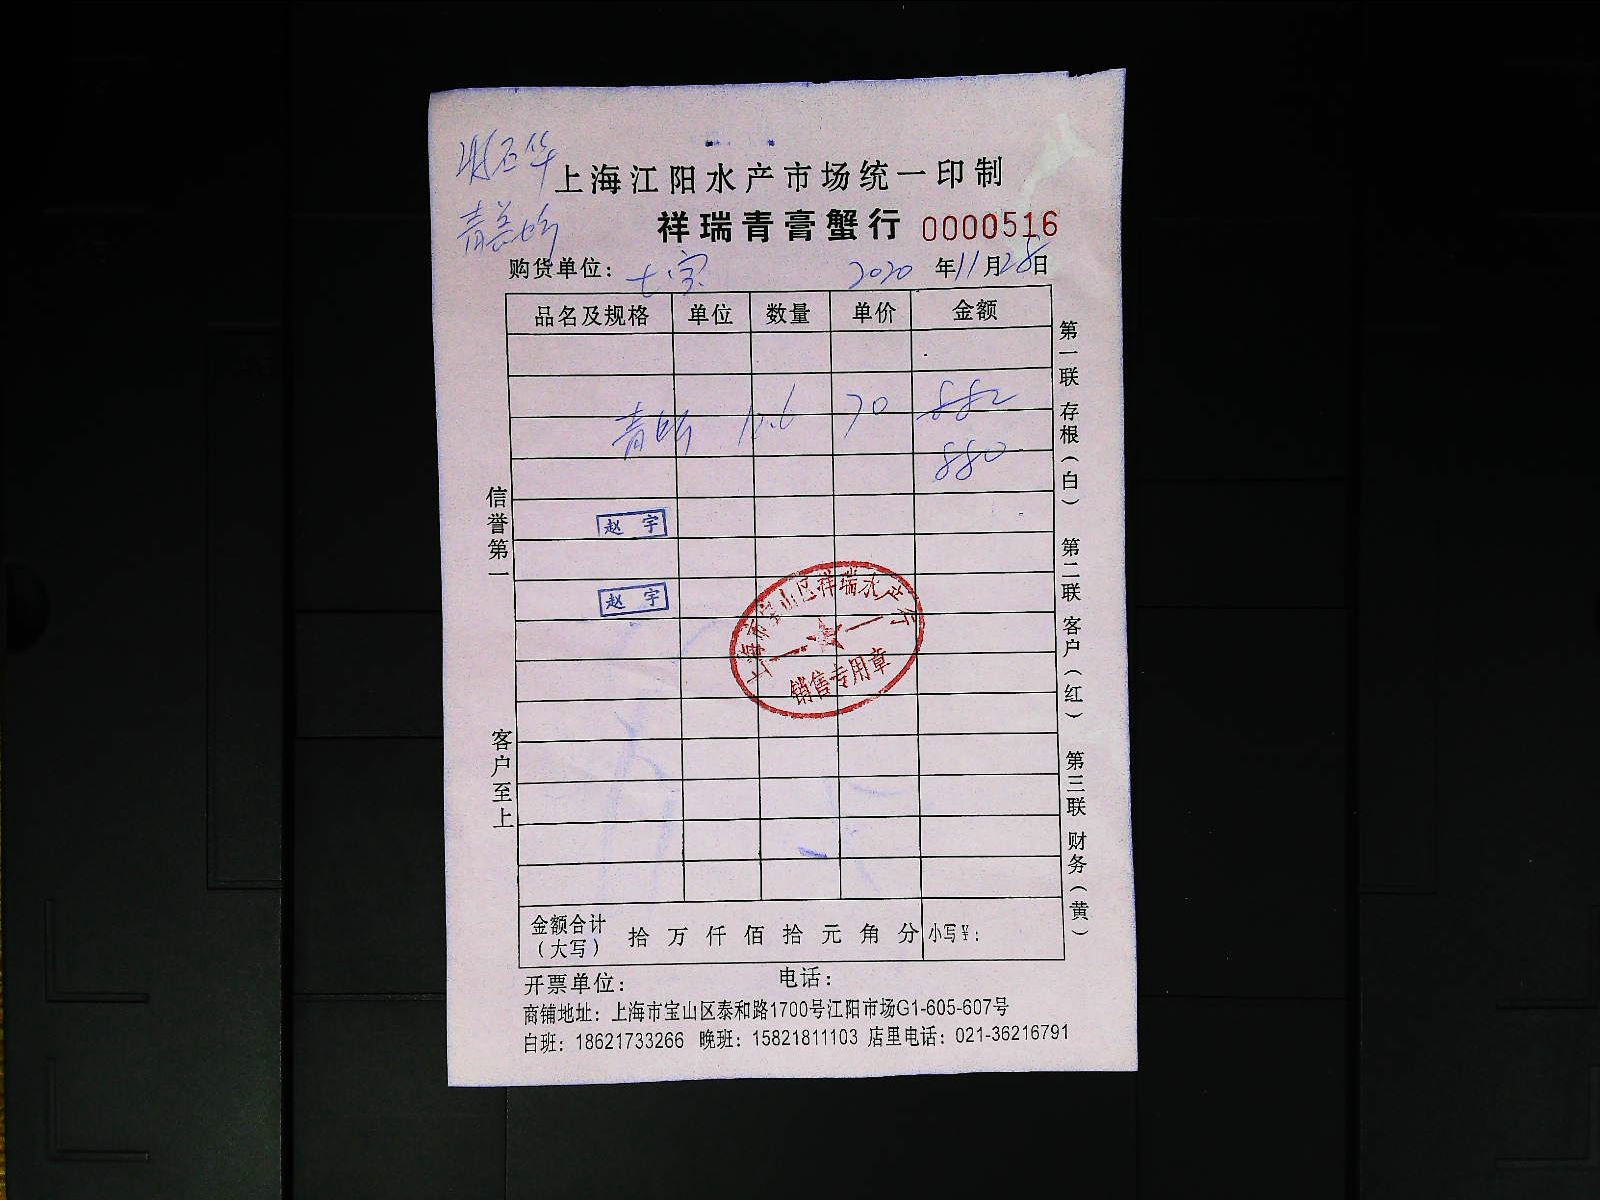 上海江阳水产市场统一印制
祥瑞青膏蟹行 0000516
购货单位： 2020 年 11 月 28 日
品名及规格 单位 数量 单价 金额
青 12.6 70 882
880
赵 宇
赵 宇
上海市宝山区祥瑞水产行
销售专用章
信誉第一
客户至上
第一联 存根（白）
第二联 客户（红）
第三联 财务（黄）
金额合计（大写） 拾 万 仟 佰 拾 元 角 分 小写￥：
开票单位： 电话：
商铺地址：上海市宝山区泰和路1700号江阳市场G1-605-607号
白班：18621733266 晚班：15821811103 店里电话：021-36216791